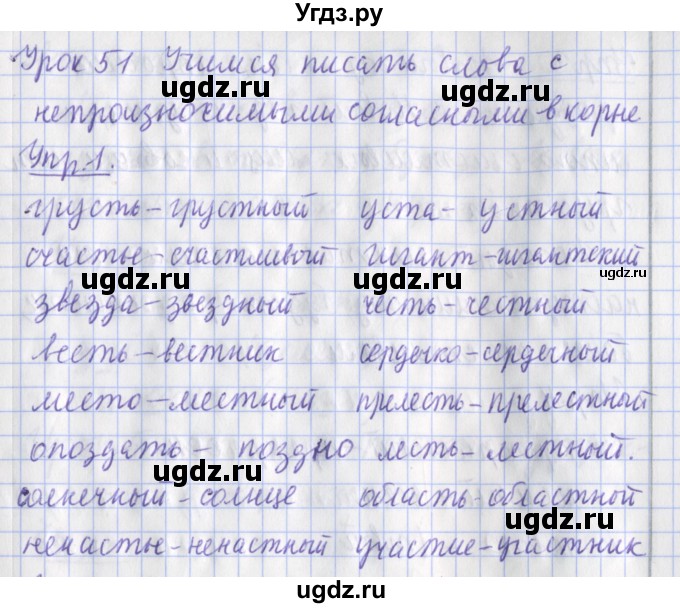 Угдз.ру
Урок 51 Учимся писать слова с
ugdz.ru ugdz.ru
непроизносимыми согласными в корне
Упр.1.
грусть - грустный уста - устный
счастье - счастливый гигант - гигантский
ugdz.ru ugdz.ru ugdz.ru
звезда - звездный честь - честный
весть - вестник сердечко - сердечный
место - местный прелесть - прелестный
опоздать - поздно лесть - лестный.
ugdz.ru
солнечный - солнце область - областной
ненастье - ненастный участие - участник
ugdz.ru ugdz.ru
ugdz.ru